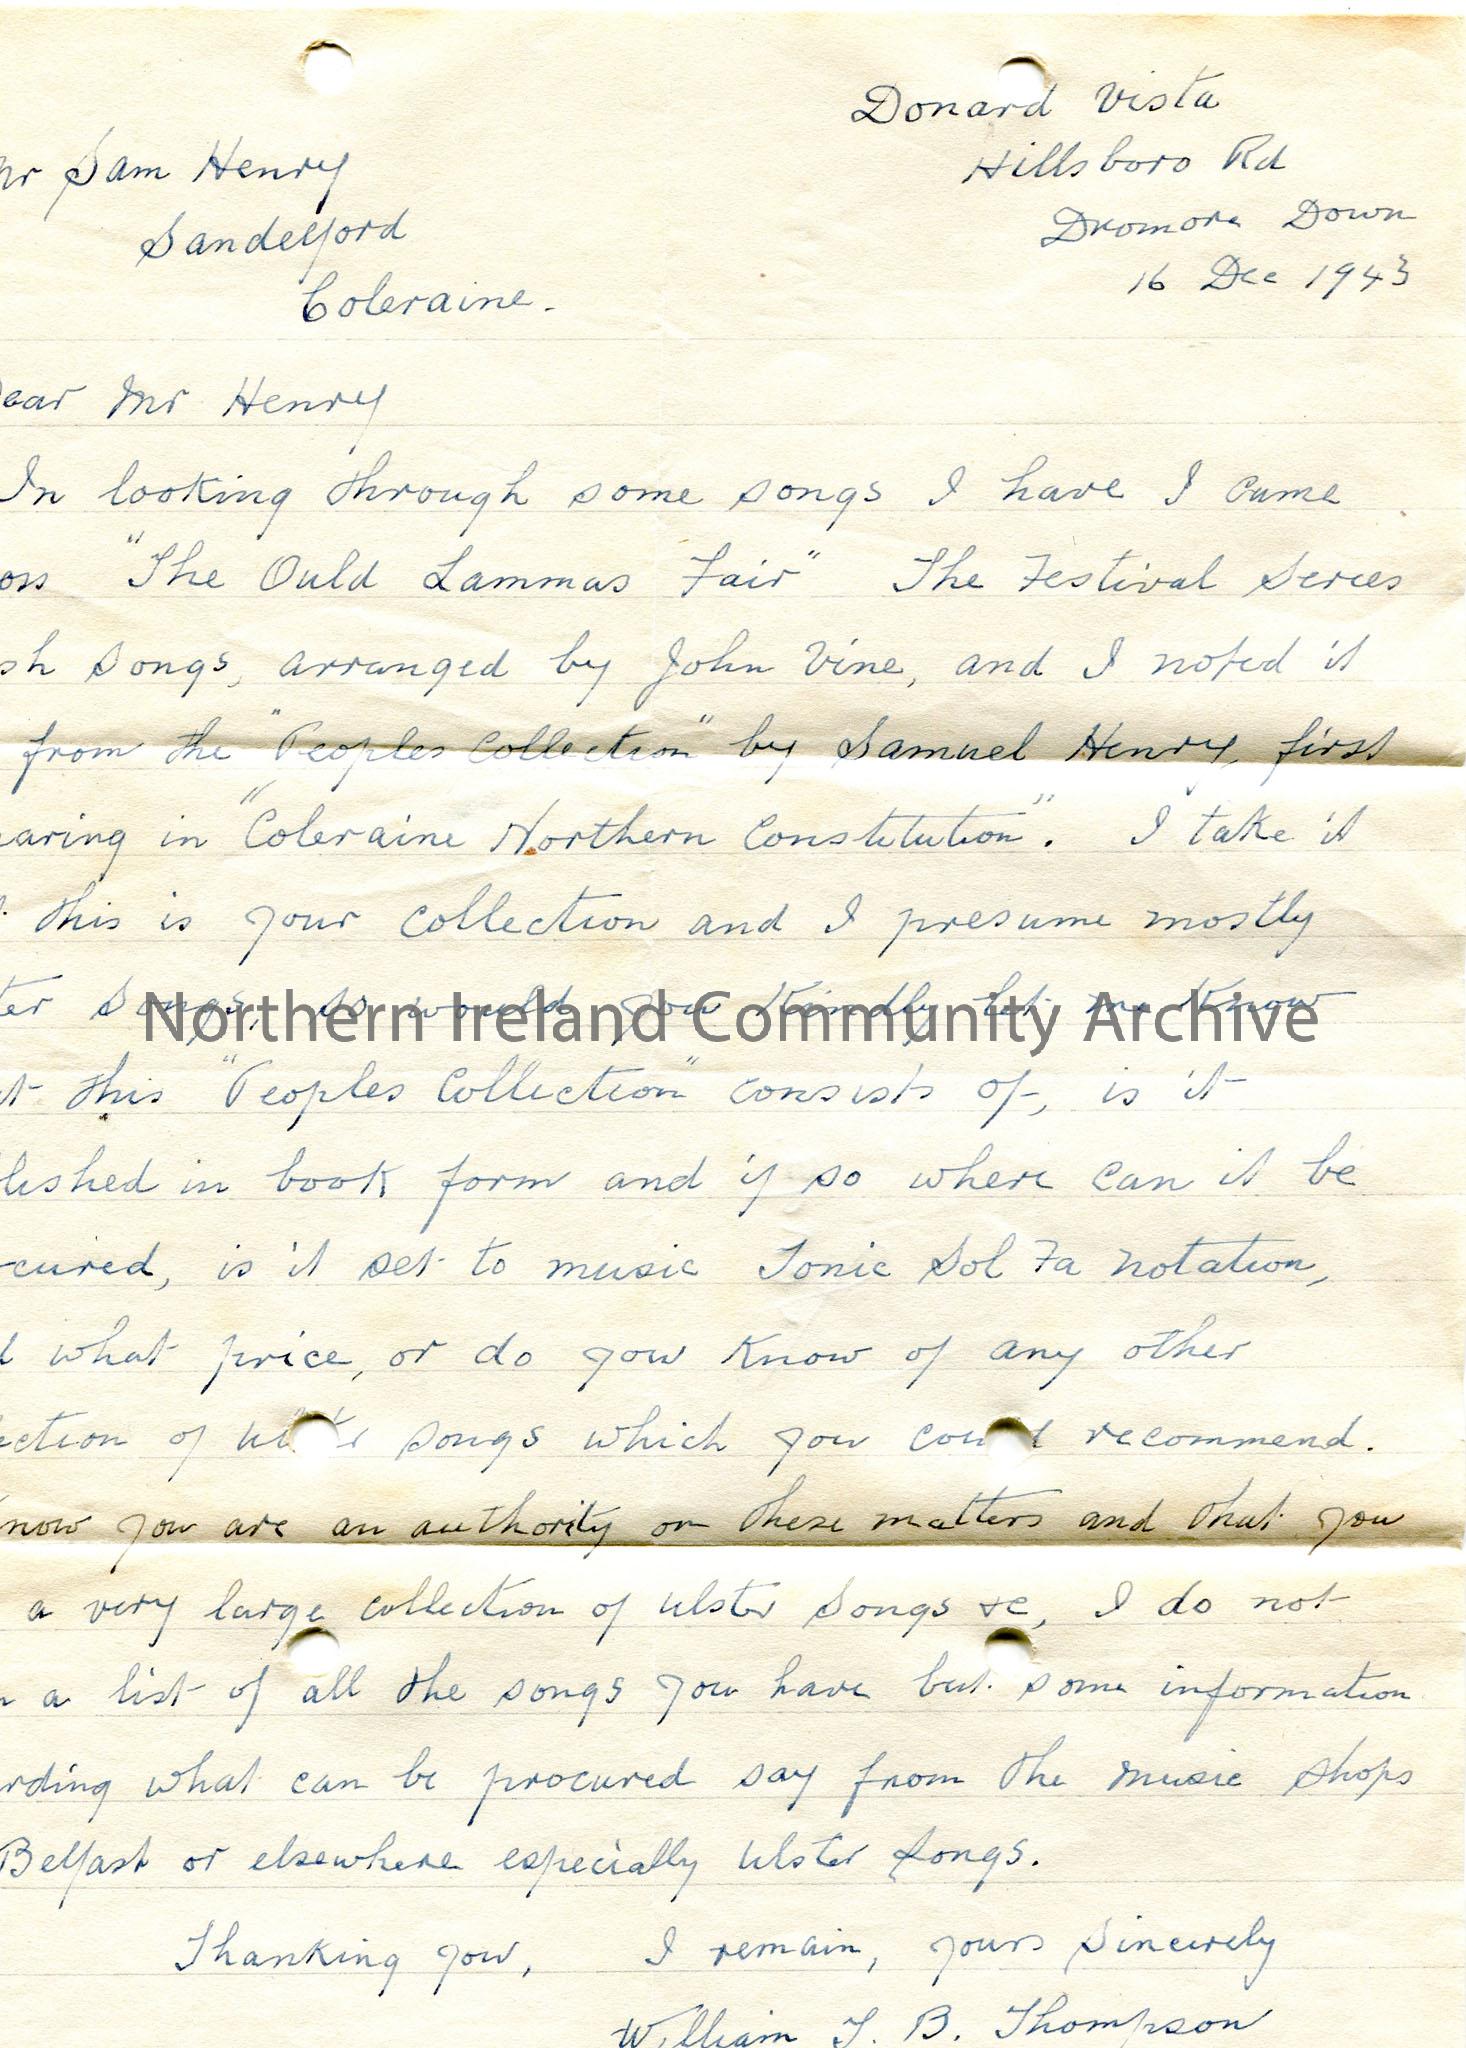 Donard Vista
Mr Sam Henry
Hillsboro Rd
Sandelford
Dromore Down
Coleraine.
16 Dec 1943
Dear Mr Henry
In looking through some songs I have I came
oss "The Ould Lammas Fair" The Festival Series
sh songs, arranged by John Vine, and I noted it
from the "Peoples Collection" by Samuel Henry, first
earing in "Coleraine Northern Constitution". I take it
this is your collection and I presume mostly
ter songs, so would you kindly let me know
at this "Peoples Collection" consists of, is it
lished in book form and if so where can it be
cured, is it set to music Tonic Sol Fa notation,
d what price, or do you know of any other
ection of Ulster songs which you could recommend.
know you are an authority on these matters and that you
a very large collection of Ulster Songs &c, I do not
a list of all the songs you have but some information
rding what can be procured say from the music shops
Belfast or elsewhere especially Ulster songs.
Thanking you, I remain, yours sincerely
William T. B. Thompson
Northern Ireland Community Archive